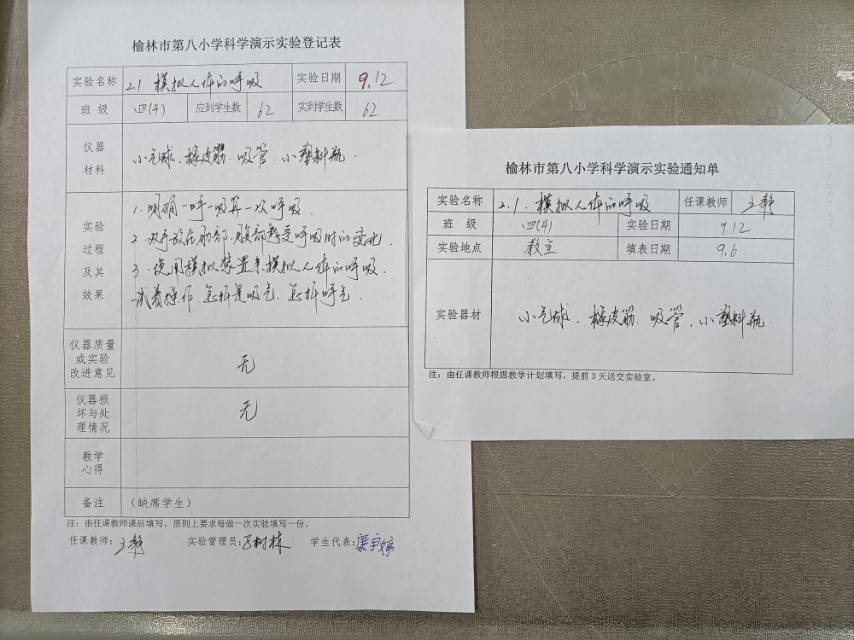 榆林市第八小学科学演示实验登记表
实验名称 2.1 模拟人体的呼吸 实验日期 9.12
班 级 四(4) 应到学生数 62 实到学生数 62
仪器
材料
小气球、橡皮筋、吸管、小塑料瓶.
实验
过程
及其
效果
1. 明确一呼一吸算一次呼吸.
2. 双手放在肋部、腹部感受呼吸时的变化.
3. 使用模拟装置来模拟人体的呼吸.
试着操作,怎样是吸气,怎样呼气.
仪器质量
或实验
改进意见
无
仪器损
坏与处
理情况
无
教学
心得
备注 (缺席学生)
注:由任课教师课后填写,原则上要求每做一次实验填写一份。
任课教师: 实验管理员: 学生代表:
榆林市第八小学科学演示实验通知单
实验名称 2.1. 模拟人体的呼吸 任课教师
班 级 四(4) 实验日期 9.12
实验地点 教室 填表日期 9.6
实验器材 小气球、橡皮筋、吸管、小塑料瓶.
注:由任课教师根据教学计划填写,提前3天送交实验室。